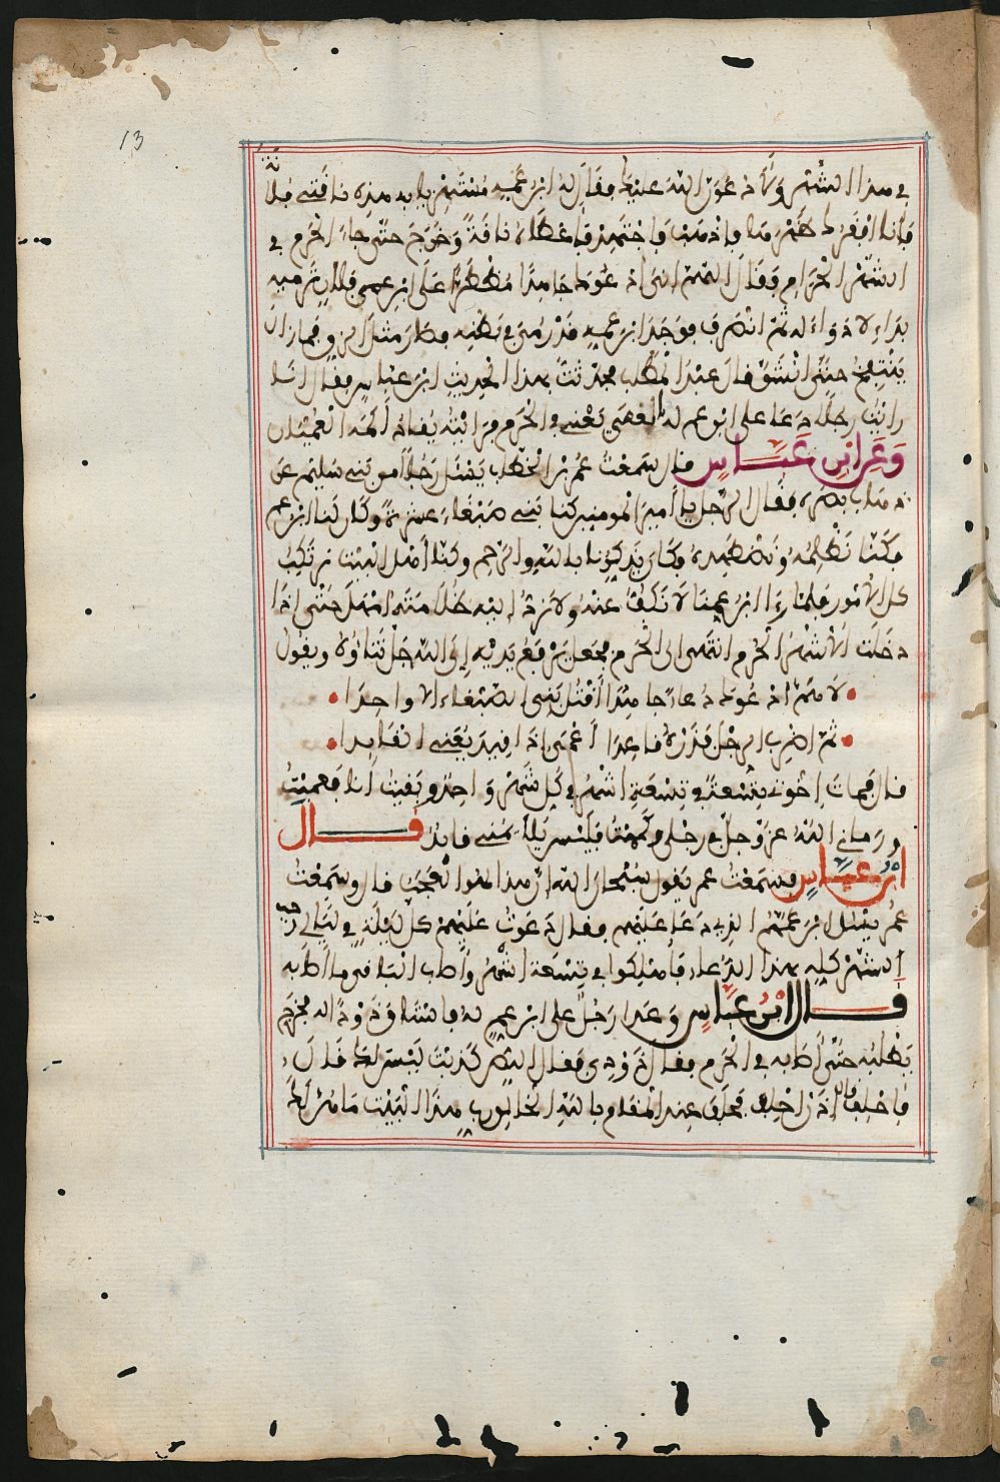 13
في هذا الشهر ولا دعون الله عليك فقال له ابن عمه هذه ناقتي فلانة
فانا افقر ظهر فاذهب فاعطاه ناقة وخرج حتى جاء الحرم في
الشهر الحرام فقال اللهم اني ادعوك جاهدا مضطرا على ابن عمي فلان ترميه
بداء لا دواء له ثم انصرف فوجد ابن عمه قد رمي في بطنه فصار مثل الزق فما زال
ينتفخ حتى انشق قال عبد المطلب فحدثت بهذا الحديث ابن عباس فقال انا
رايت رجلا دعا على ابن عم له بالعمى يعني في الحرم فرايته يقاد اكمه العينين
وعن ابن عباس قال سمعت عمر بن الخطاب يسئل رجلا من بني سليم عن
ذهاب بصره فقال الرجل يا امير المومنين كنا بني ضبعاء عشرة وكان لنا ابن عم
فكنا نظلمه ونضطهده فكان يذكرنا بالله والرحم وكنا اهل البيت نرتكب
كل الامور فلما رءا ابن عمنا لا نكف عنه ولا نرد اليه ظلامته امهل حتى اذا
دخلت الاشهر الحرم انتهى الى الحرم فجعل يرفع يديه الى الله جل ثناؤه ويقول
لا هم ادعوك دعاء جاهدا اقتل بني الضبعاء الا واحدا
ثم اضرب الرجل فذره قاعدا اعمى اذا قيد يعني القايدا
قال فمات اخوتي تسعة في تسعة اشهر في كل شهر واحد وبقيت انا فعميت
ورماني الله عز وجل في رجلي وكمهت فليس يلايمني قايد قال
ابن عباس فسمعت عمر يقول سبحان الله ان هذا لهو العجب قال وسمعت
عمر يسئل ابن عمهم الذي دعا عليهم فقال دعوت عليهم كل ليلة في ليالي رجب
الشهر كله بهذا الدعاء فاهلكوا في تسعة اشهر واصاب الباقي ما اصابه
قال ابن عباس وعدا رجل على ابن عم له فاستاق ذودا له فخرج
يطلبه حتى اصابه في الحرم فقال ذودي فقال اللص كذبت ليس لك قال
فاحلف قال اذن احلف فحلف عند المقام بالله الخالق رب هذا البيت ما هن لك